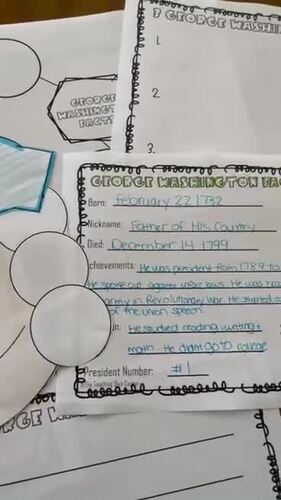 ? GEORGE WASHIN
1.
2.
3.
GEORGE
WASHINGTON
FACTS
GEORGE WASHINGTON FA
Born: February 22 1732
Nickname: Father of His Country
Died: December 14 1799
chievements: He was president from 1789 to
He spoke out against unfair laws. He was
army in Revolutionary War. He started
of the union speech
in: He studied reading, writing +
math. He didnt go to college
President Number: #1